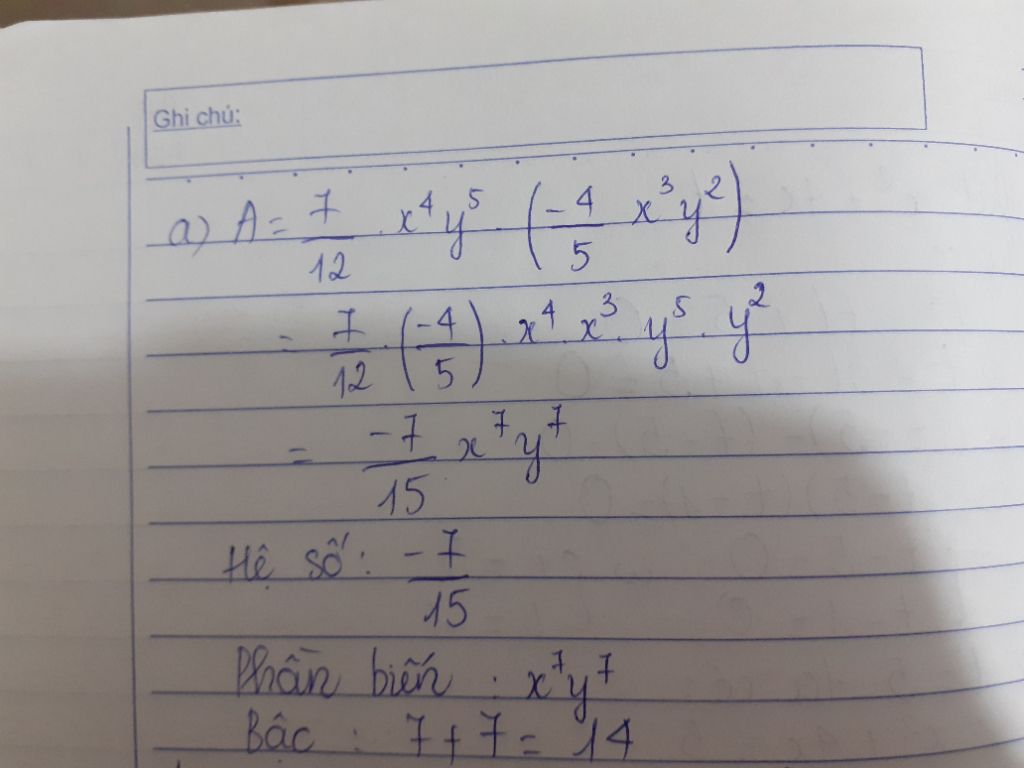 Ghi chú:
a) A = 7/12 . x⁴y⁵ . (-4/5 x³y²)
= 7/12 . (-4/5) . x⁴ . x³ . y⁵ . y²
= -7/15 x⁷y⁷
Hệ số : -7/15
Phần biến : x⁷y⁷
Bậc : 7+7 = 14